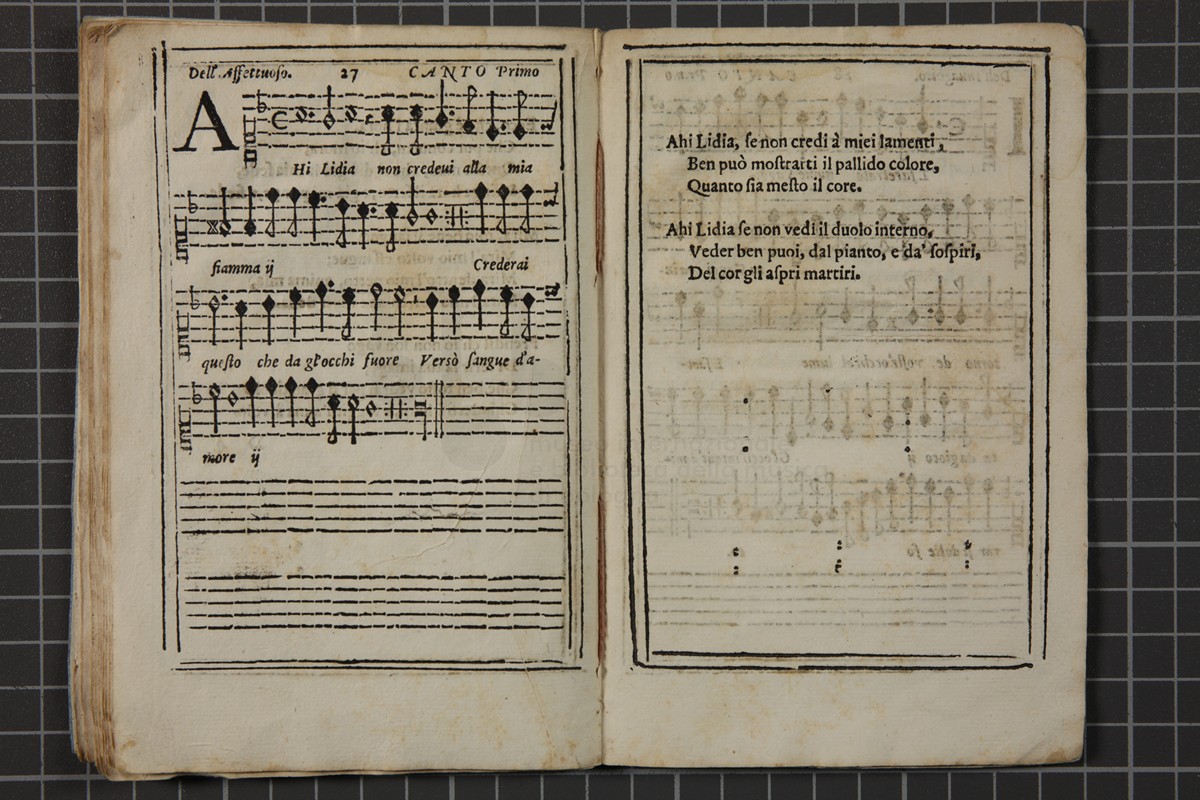 Dell'Affettuoso. 27 CANTO Primo
AHi Lidia non credeui alla mia
fiamma ij Crederai
questo che da gl'occhi fuore Versò sangue d'a-
more ij
Ahi Lidia, se non credi à miei lamenti,
Ben può mostrarti il pallido colore,
Quanto sia mesto il core.
Ahi Lidia se non vedi il duolo interno,
Veder ben puoi, dal pianto, e da' sospiri,
Del cor gli aspri martiri.